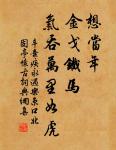 想當年
金戈鐵馬
氣吞萬里如虎
辛棄疾永遇樂京口北
固亭懷古詞典網集